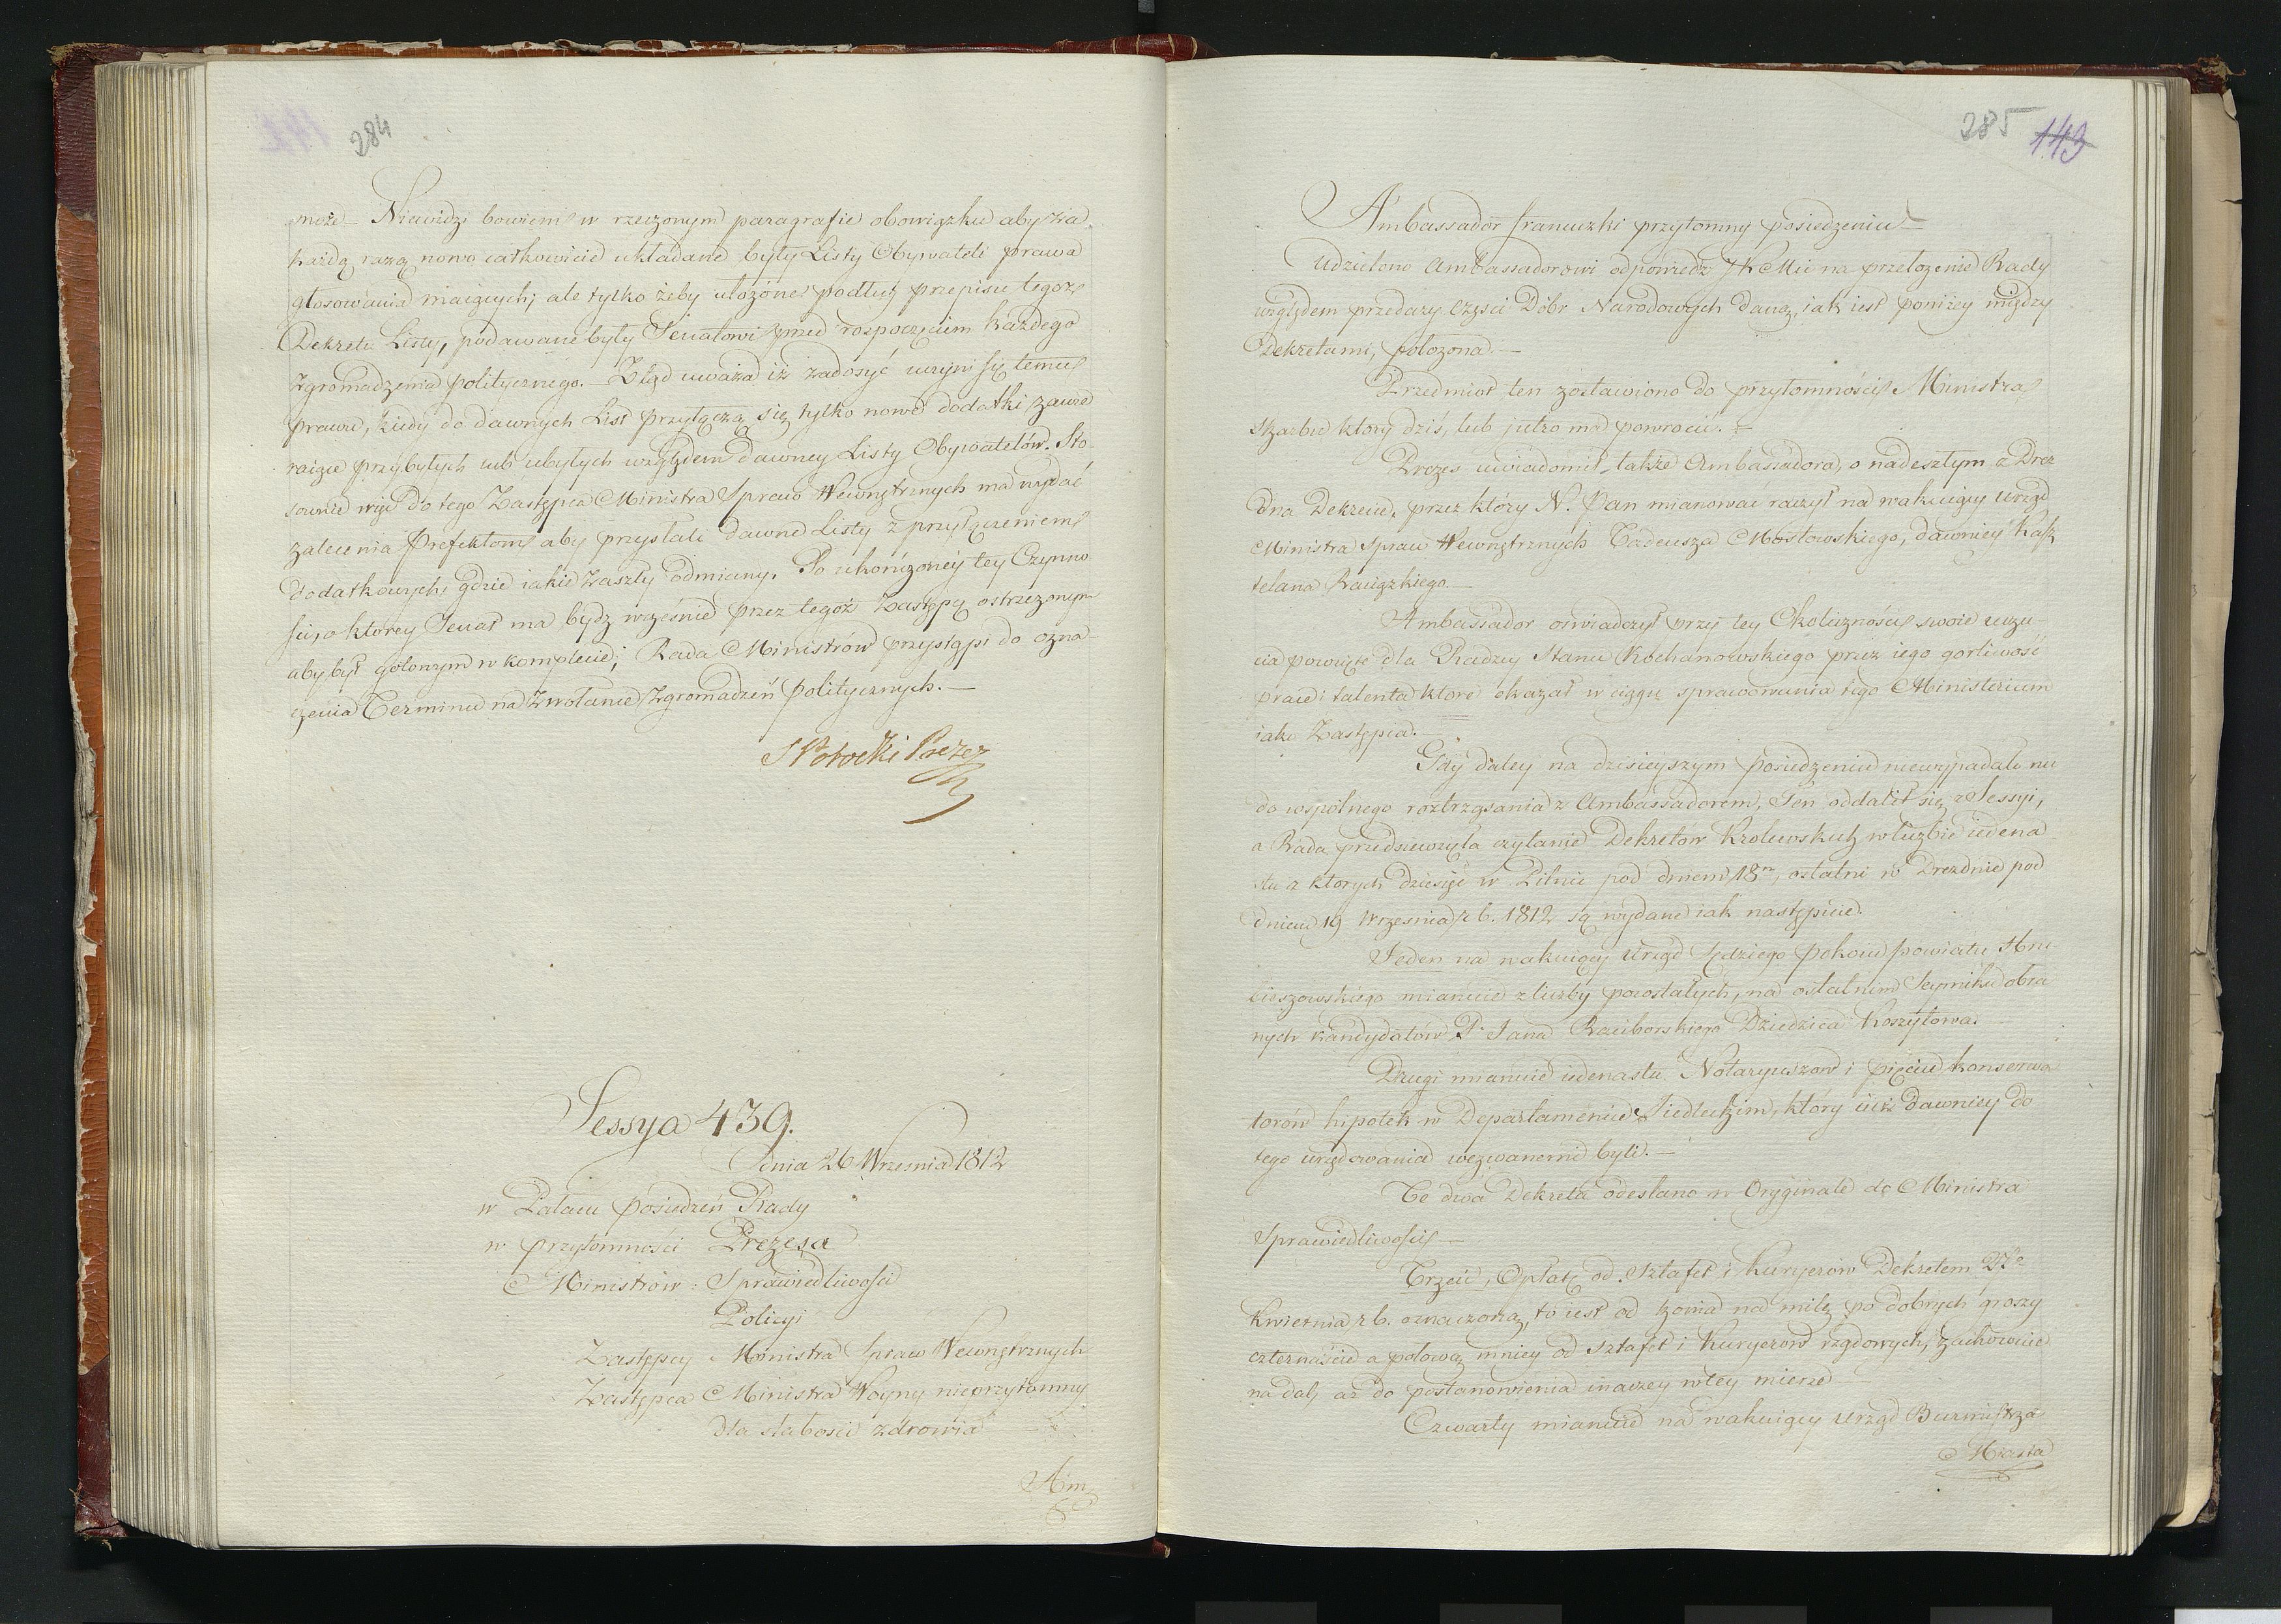 284
może. Niewidzi bowiem w rzeczonym paragrafie obowiązku aby za
każdą razą nowo całkowicie układane były Listy Obywateli prawa
głosowania maiących; ale tylko żeby ułożone podług przepisu tegoż
Dekretu Listy, podawane były Senatowi przed rozpoczęciem każdego
Zgromadzenia politycznego. Ztąd uważa iż zadosyć uczyni się temu
prawu, kiedy do dawnych List przyłączą się tylko nowe dodatki zawie
raiące przybyłych lub ubyłych względem dawney Listy Obywatelów. Sto
sownie więc do tego Zastępca Ministra Spraw Wewnętrznych ma wydać
zalecenia Prefektom aby przysłali dawne Listy z przyłączeniem
dodatkowych, gdzie iakie zaszły odmiany. Po ukończoney tey Czynno
ści, o ktorey Senat ma bydz wcześnie przez tegoż Zastępcę ostrzeżonym
aby był gotowym w komplecie; Rada Ministrów przystąpi do ozna-
czenia Terminu na Zwołanie Zgromadzeń politycznych.—
S Potocki Prezes
Sessya 439.
dnia 26 Września 1812
w Pałacu posiedzeń Rady
w przytomności Prezesa
Ministrów: Sprawiedliwości
Policyi
Zastępcy Ministra Spraw Wewnętrznych
Zastępca Ministra Woyny nieprzytomny
dla słabości zdrowia
Am
285 143
Ambassador francuzki przytomny posiedzeniu—
Udzielono Ambassadorowi odpowiedź JKMci na przełożenie Rady
względem przedaży Części Dóbr Narodowych daną, iak iest poniżey między
Dekretami, położona.—
Przedmiot ten zostawiono do przytomności Ministra
Skarbu ktory dziś, lub jutro ma powrocić.—
Prezes uwiadomił także Ambassadora, o nadeszłym z Drez
dna Dekrecie, przez który N. Pan mianować raczył na wakuiący Urząd
Ministra Spraw Wewnętrznych Tadeusza Mostowskiego, dawniey Kasz
telana Raciązkiego.—
Ambassador oświadczył przy tey Okoliczności swoie uczu-
cia powzięte dla Radzcy Stanu Kochanowskiego przez iego gorliwość
prace i talenta ktore okazał w ciągu sprawowania tego Ministerium
iako Zastępca.
Gdy daley na dzisieyszym posiedzeniu niewypadało nic
do wspólnego roztrząsania z Ambassadorem, Ten oddalił się z Sessyi,
a Rada przedsięwzięła czytanie Dekretów Krolewskich w liczbie iedena
stu z ktorych dziesięć w Pilnic pod dniem 18m, ostatni w Dreznie pod
dniem 19 Września r b. 1812 są wydane iak następuie.
Jeden na wakuiący Urząd Sędziego pokoiu powiatu Hru
bieszowskiego mianuie z liczby pozostałych, na ostatnim Seymiku obra
nych kandydatów P. Jana Raciborskiego Dziedzica Koszyłowa.
Drugi mianuie iedenastu Notaryuszow i pięciu konserwa
torów hipotek w Departamencie Siedleckim, ktory iuż dawniey do
tego urzędowania wezwanemi byli.—
Te dwa Dekreta odesłano w Oryginale do Ministra
Sprawiedliwości—
Trzeci, Opłatę od Sztafet i Kuryerów Dekretem
Kwietnia r b. oznaczoną, to iest od konia na milę po dobrych groszy
czternaście a połową mniey od sztafet i Kuryerow rządowych, zachowuie
nadal, aż do postanowienia inaczey w tey mierze—
Czwarty mianuie na wakuiący Urząd Burmistrza
Miasta